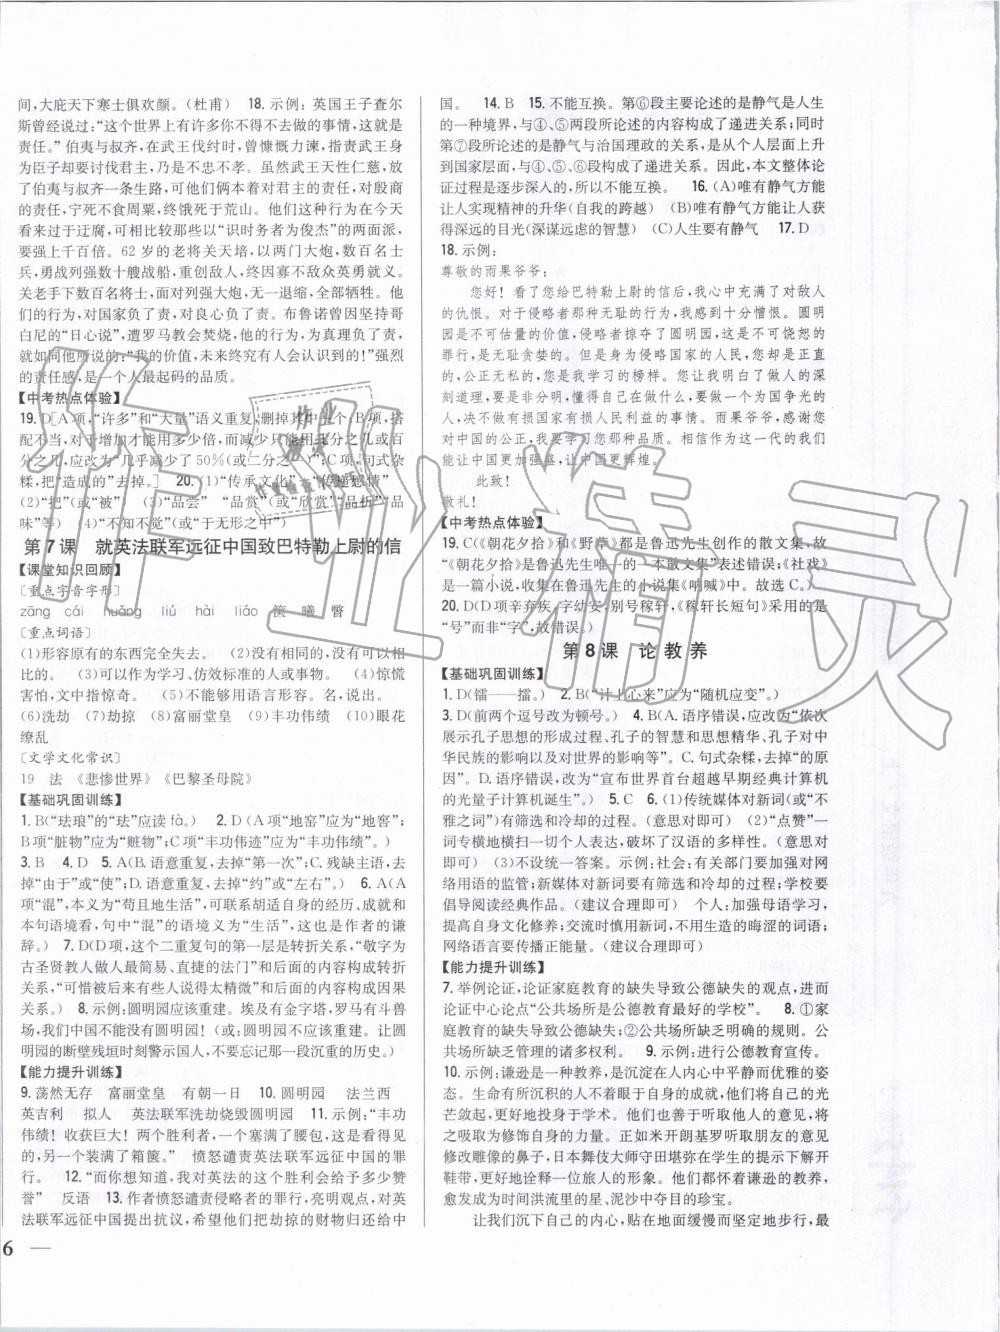 间,大庇天下寒士俱欢颜。(杜甫) 18. 示例:英国王子查尔
斯曾经说过:“这个世界上有许多你不得不去做的事情,这就是
责任。”伯夷与叔齐,在武王伐纣时,曾慷慨力谏,指责武王身为
为臣子却要讨伐君主,乃是不忠不孝。虽然武王天性仁慈,
放了伯夷与叔齐一条生路,可他们俩本着对君主的责任,对殷商
的责任,宁死不食周粟,终饿死于荒山。他们这种行为在今天
看来过于迂腐,可相比较那些以“识时务者为俊杰”的两面派,
要强上千百倍。62 岁的老将关天培,以一两门大炮,数百名士
兵,勇战列强数十艘战船,重创敌人,终因寡不敌众英勇就义。
关老手下数百名将士,面对列强大炮,无一退缩,全部牺牲。他
们的行为,对国家负了责,对良心负了责。布鲁诺曾因坚持哥
白尼的“日心说”,遭罗马教会焚烧,他的行为,为真理负了责,
就如同他所说的:“我的价值,未来终究有人会认识到的!”强烈
的责任感,是一个人最起码的品质。
【中考热点体验】
19. D(A项,“许多”和“大量”语义重复,删掉其中一个;B项,搭
配不当,对于增加才能用倍,而减少只能用百分之几或几百
分之几,应改为“几乎减少了 50%(或二分之一)”;C项,句式杂
糅,把“造成的”去掉。) 20. (1)“传承文化” “传递感情”
(2)“把”(或“被”) (3)“品尝” “品赏”(或“欣赏”“品析”“品
味”等) (4)“不知不觉”(或“于无形之中”)
第 7 课 就英法联军远征中国致巴特勒上尉的信
【课堂知识回顾】
[重点字音字形]
zāng cái huǎng liú hài liáo 箧 曦 瞥
[重点词语]
(1)形容原有的东西完全失去。 (2)没有相同的,没有可以相
比的。 (3)可以作为学习、仿效标准的人或事物。 (4)惊慌
害怕,文中指惊奇。 (5)不能够用语言形容。形容极甚。
(6)洗劫 (7)劫掠 (8)富丽堂皇 (9)丰功伟绩 (10)眼花
缭乱
[文学文化常识]
19 法 《悲惨世界》《巴黎圣母院》
【基础巩固训练】
1. B(“珐琅”的“珐”应读 fà。) 2. D(A 项“地窑”应为“地窖”;
B 项“脏物”应为“赃物”;C 项“丰功伟迹”应为“丰功伟绩”。)
3. B 4. D 5. A(B. 语意重复,去掉“第一次”;C. 残缺主语,去
掉“由于”或“使”;D. 语意重复,去掉“约”或“左右”。) 6. A(A
项,“混”的本义为“苟且地生活”,可联系胡适自身的经历、成就和本
句语境看,句中“混”的语境义为“生活”,这也是作者的谦
辞。) 7. D(D 项,这个二重复句的第一层是转折关系,“敬字为
古圣贤教人做人最简易、直捷的法门”和后面的内容构成转折
关系,“可惜被后来有些人说得太精微”和后面的内容构成因果
关系。) 8. 示例:圆明园应该重建。埃及有金字塔,罗马有斗兽
场,我们中国不能没有圆明园!(或:圆明园不应该重建。让圆
明园的断壁残垣时刻警示国人,不要忘记那一段沉重的历史。)
【能力提升训练】
9. 荡然无存 富丽堂皇 有朝一日 10. 圆明园 法兰西
英吉利 拟人 英法联军洗劫烧毁圆明园 11. 示例:“丰功
伟绩! 收获巨大! 两个胜利者,一个塞满了腰包,这是看得见
的,另一个装满了箱箧。” 愤怒谴责英法联军远征中国的罪
行。 12. “而你想知道,我对英法的这个胜利会给予多少赞
誉” 反语 13. 作者愤怒谴责侵略者的罪行,亮明观点,对英
法联军远征中国提出抗议,希望他们把劫掠的财物归还给中
国。 14. B 15. 不能互换。第⑥段主要论述的是静气是人生
的一种境界,与④、⑤两段所论述的内容构成了递进关系;同时
第⑦段论述的是静气与治国理政的关系,是从人生层面上升
到国家层面,与④、⑤、⑥段构成了递进关系。因此,本文整体论
证过程是逐步深入的,所以不能互换。 16. (A)唯有静气方能
让人实现精神的升华(自我的跨越) (B)唯有静气方能让人获
得深远的目光(深谋远虑的智慧) (C)人生要有静气 17. D
18. 示例:
尊敬的雨果爷爷:
您好! 看了您给巴特勒上尉的信后,我心中充满了对敌人
的仇恨。对于侵略者那种无耻的行为,我感到十分憎恨。圆明
园是不可估量的价值,侵略者掠夺了圆明园,这是不可饶恕的
罪行,是无耻贪婪的。但是身为侵略国家的人民,您却是正直
的,公正无私的,您是我们学习的榜样。您让我明白了做人的深
刻道理,要是非分明,懂得自己在做什么,要做一个为国争光的
人,决不做有损国家有损人民利益的事情。雨果爷爷,感谢您
对中国的公正,我要学习您那种品质。相信作为这一代的我们
能让中国更加强盛,让中国更辉煌。
此致!
敬礼!
【中考热点体验】
19. C(《朝花夕拾》和《野草》都是鲁迅先生创作的散文集,故
“《朝花夕拾》是鲁迅先生唯一的一本散文集”表述错误;《社戏》
是一篇小说,收集在鲁迅先生的小说集《呐喊》中。故选 C。)
20. D(D 项辛弃疾,字幼安,别号稼轩,《稼轩长短句》采用的是
“号”而非“字”,故错误。)
第 8 课 论 教 养
【基础巩固训练】
1. D(镭——擂。) 2. B(“计上心来”应为“随机应变”。)
3. D(前两个逗号改为顿号。) 4. B(A. 语序错误,应改为“依次
展示孔子思想的形成过程、孔子的智慧和思想精华、孔子对中
华民族的影响以及对世界的影响等”。C. 句式杂糅,去掉“的
原因”。D. 语序错误,改为“宣布世界首台超越早期经典计算机
的光量子计算机诞生”。) 5. C 6. (1)传统媒体对新词(或“不
雅之词”)有筛选和冷却的过程。(意思对即可) (2)“点赞”一
词专横地横扫一切个人表达,破坏了汉语的多样性。(意思对
即可) (3)不设统一答案。示例:社会:有关部门要加强对网
络用语的监管;新媒体对新词要有筛选和冷却的过程;学校要
倡导阅读经典作品。(建议合理即可) 个人:加强母语学习,
提高自身文化修养;交流时慎用新词,不用生造的晦涩的词语;
网络语言要传播正能量。(建议合理即可)
【能力提升训练】
7. 举例论证,论证家庭教育的缺失导致公德缺失的观点,进而
论证中心论点“公共场所是公德教育最好的学校”。 8. ①家
庭教育的缺失导致公德缺失;②公共场所缺乏明确的规则。公
共场所缺乏管理的诸多权利。 9. 示例:进行公德教育宣传。
10. 示例:谦逊是一种教养,是沉淀在人内心中平静而优雅的姿
态。生命有所沉积的人不看重于自己显露的光芒,自己的光
芒越敛起,更好地投身于学术。他们也善于听取他人的意见,将
其吸收为修饰自身的力量。正如米开朗基罗听取朋友的意见
修改雕像的鼻子,日本舞伎大师守田堪弥在学生的提示下解开
鞋带,更好地诠释一位旅人的形象。他们谦逊着他们的教养,
愈发成为时间洪流里的星、泥沙中夺目的珍宝。
让我们沉下自己的内心,贴在地面缓慢而坚定地步行,最
6 —
作业精灵